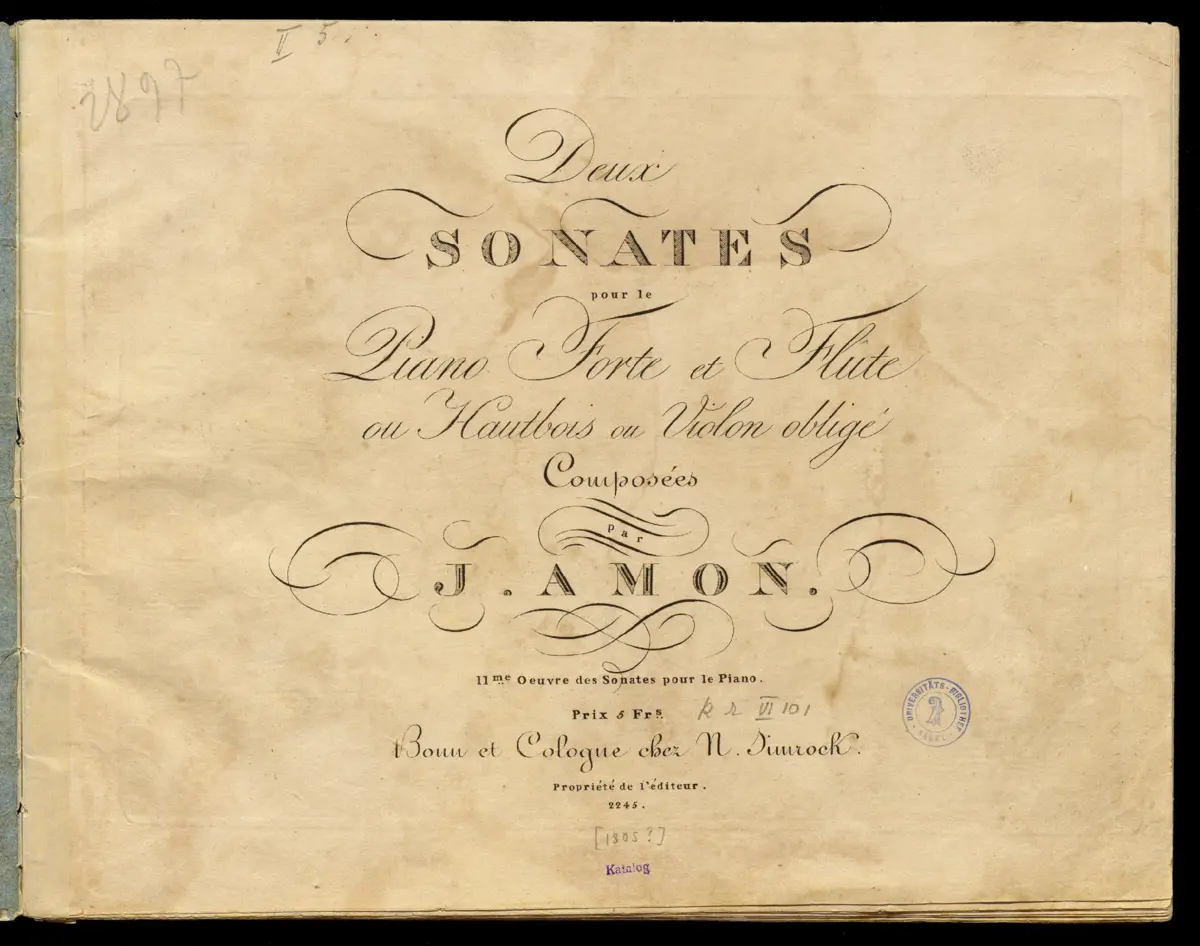 II 5.
2897
Deux
SONATES
pour le
Piano Forte et Flûte
ou Hautbois ou Violon obligé
Composées
par
J. AMON.
11me Oeuvre des Sonates pour le Piano.
Prix 5 Frs. k r VI 101
Bonn et Cologne chez N. Simrock.
Propriété de l'éditeur.
2245.
[1805?]
Katalog
UNIVERSITÄTS-BIBLIOTHEK
BASEL